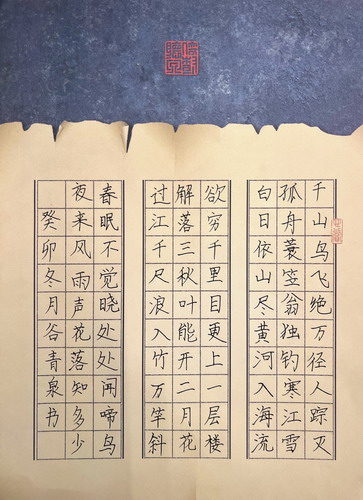 千山鸟飞绝万径人踪灭
孤舟蓑笠翁独钓寒江雪
白日依山尽黄河入海流
欲穷千里目更上一层楼
解落三秋叶能开二月花
过江千尺浪入竹万竿斜
春眠不觉晓处处闻啼鸟
夜来风雨声花落知多少
癸卯冬月谷青泉书